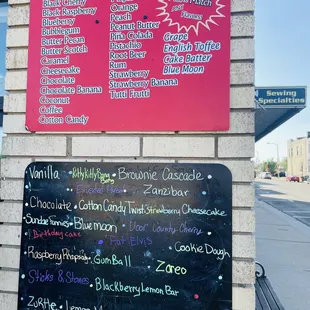 Black Cherry
Black Raspberry
Blueberry
Bubblegum
Butter Pecan
Butter Scotch
Caramel
Cheesecake
Chocolate
Chocolate Banana
Coconut
Coffee
Cotton Candy
Orange
Peach
Peanut Butter
Piña Colada
Pistachio
Root Beer
Rum
Strawberry
Strawberry Banana
Tutti Frutti
Match
Flavors
Grape
English Toffee
Cake Batter
Blue Moon
Sewing
Specialties
Vanilla • • Brownie Cascade
Zanzibar
Chocolate • Cotton Candy Twist • Strawberry Cheesecake
• Blue moon • Door County Cherry
Birthday cake
Fat Elvis
Cookie Dough
Raspberry Rhapsody • Gum Ball
Zoreo
Sticks & Stones • Blackberry Lemon Bar
• Lemon